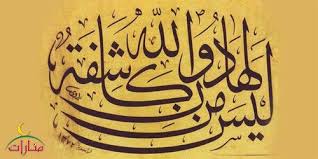 ليس لها من دون الله كاشفة
منارات